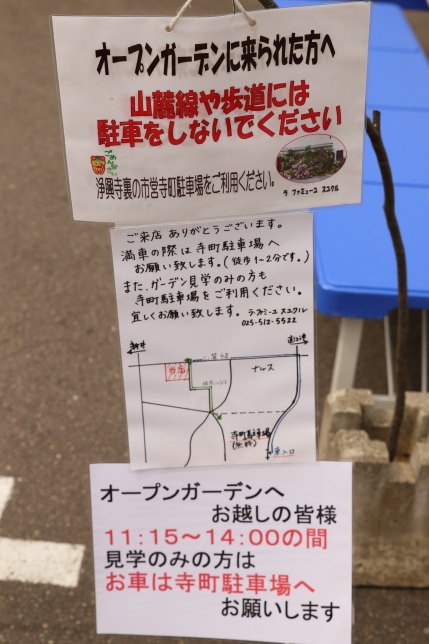 オープンガーデンに来られた方へ
山麓線や歩道には
駐車をしないでください
浄興寺裏の市営寺町駐車場をご利用ください。
ラ ファミーユ スユクル
ご来店 ありがとうございます。
満車の際は 寺町駐車場へ
お願い致します。(徒歩1~2分です。)
また、ガーデン見学のみの方も
寺町駐車場をご利用ください。
宜しくお願い致します。
ラ・ファミーユ スユクル
025-512-5522
新井
山麓線
直江津
当店
ナルス
寺町駐車場
(無料)
車入口
オープンガーデンへ
お越しの皆様
11:15~14:00の間
見学のみの方は
お車は寺町駐車場へ
お願いします